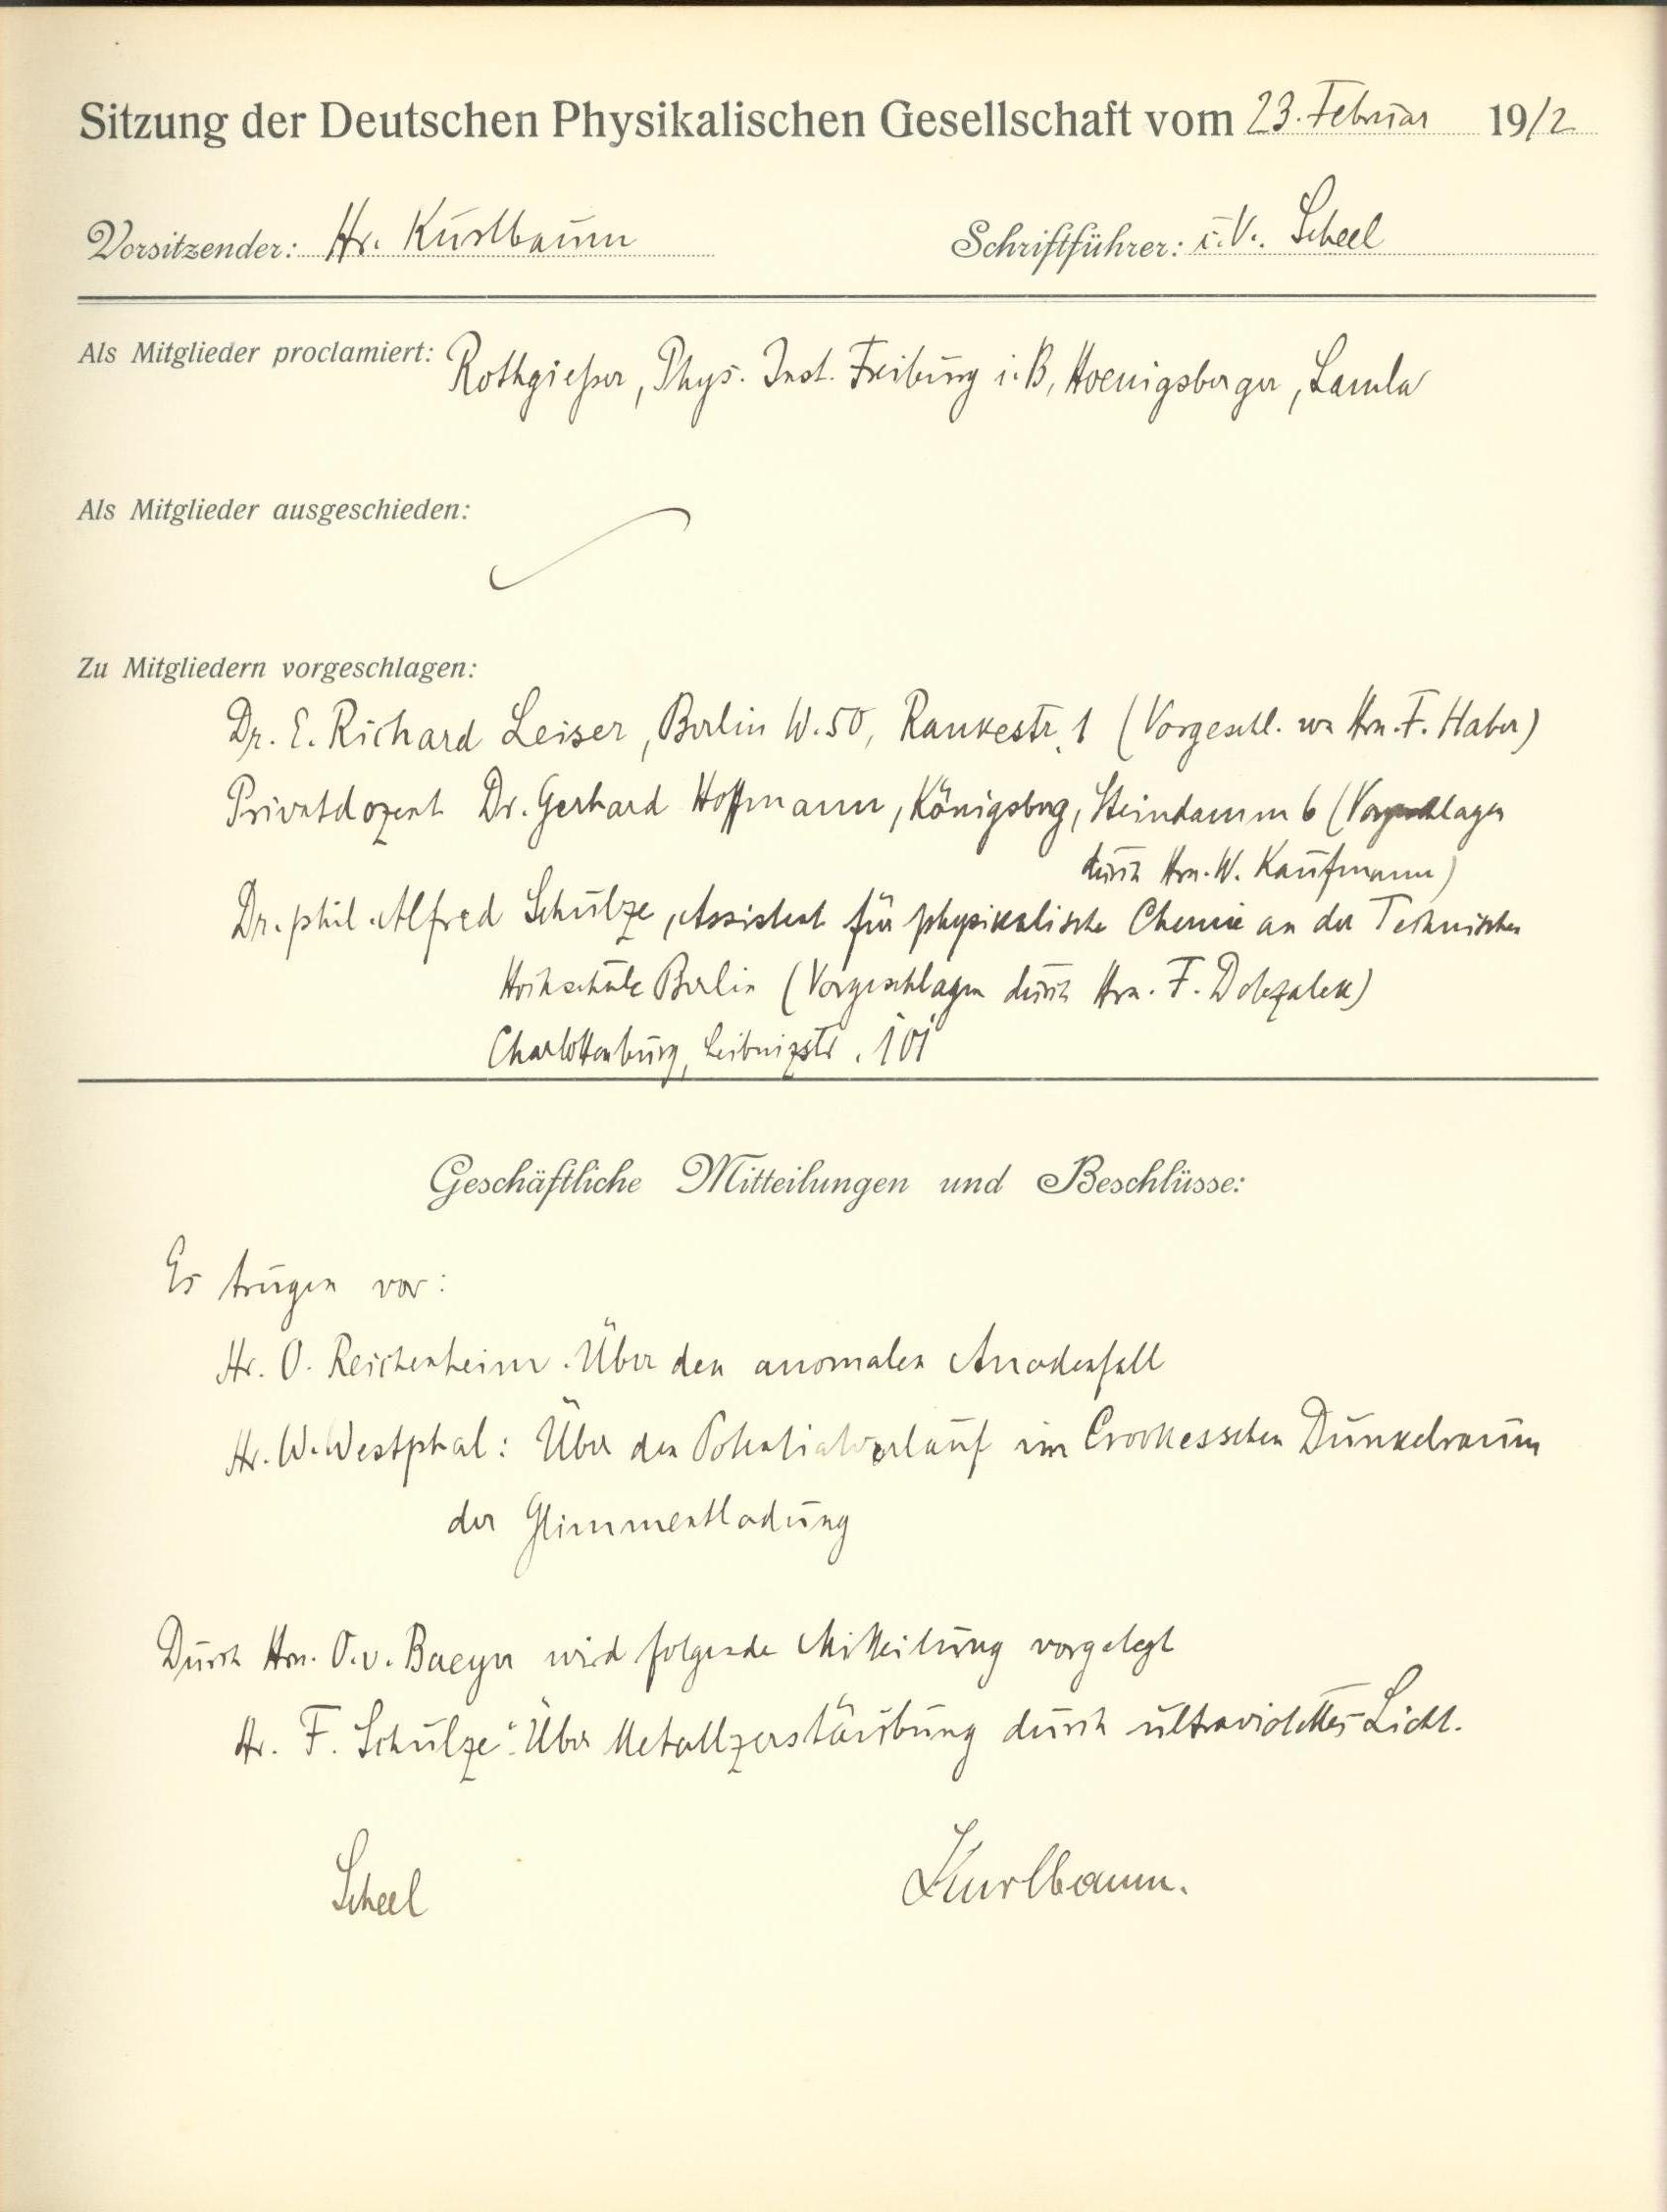 Sitzung der Deutschen Physikalischen Gesellschaft vom 23. Februar 1912
Vorsitzender: Hr. Kurlbaum Schriftführer: i. V. Scheel
Als Mitglieder proclamiert: Rothgießer, Phys. Inst. Freiburg i. B, Koenigsberger, Lamla
Als Mitglieder ausgeschieden:
Zu Mitgliedern vorgeschlagen:
Dr. E. Richard Leiser, Berlin W. 50, Rankestr. 1 (Vorgeschl. von Hrn. F. Haber)
Privatdozent Dr. Gerhard Hoffmann, Königsberg, Steindamm 6 (Vorgeschlagen
durch Hrn. W. Kaufmann)
Dr. phil. Alfred Schulze, Assistent für physikalische Chemie an der Technischen
Hochschule Berlin (Vorgeschlagen durch Hrn. F. Dolezalek)
Charlottenburg, Leibnizstr. 101
Geschäftliche Mitteilungen und Beschlüsse:
Es trugen vor:
Hr. O. Reichenheim. Über den anomalen Anodenfall
Hr. W. Westphal: Über den Potentialverlauf im Crookesschen Dunkelraum
der Glimmentladung
Durch Hrn. O. v. Baeyer wird folgende Mitteilung vorgelegt
Hr. F. Schulze: Über Metallzerstäubung durch ultraviolettes Licht.
Scheel Kurlbaum.